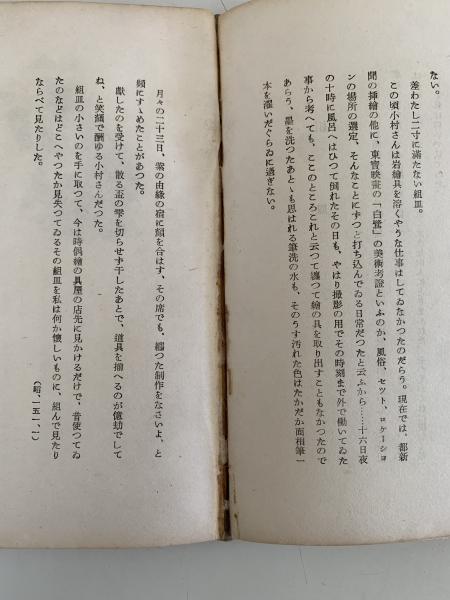 ない。
差わたし二寸に滿たない組皿。
この頃小村さんは岩繪具を溶くやうな仕事はしてゐなかつたのだらう。現在では、都新
聞の揷繪の他に、東寶映畫の「白鷺」の美術考證といふのか、風俗、セット、ロケーショ
ンの場所の選定、そんなことにずつと打ち込んでゐる日常だつたと云ふから……十六日夜
の十時に風呂へはひつて倒れたその日も、やはり撮影の用でその時刻まで外で働いてゐた
事から考へても、ここのところこれと云つて纏つて繪の具を取り出すこともなかつたので
あらう、墨を洗つたあとゝも思はれる筆洗の水も、そのうす汚れた色はたかだか面相筆一
本を濯いだぐらゐに過ぎない。
月々の二十三日、紫の由緣の宿に顏を合はす、その席でも、纏つた制作をなさいよ、と
頻にすゝめたことがあつた。
獻したのを受けて、散る盃の雫を切らせず干したあとで、道具を揃へるのが億劫でして
ね、と笑顏で酬ゆる小村さんだつた。
組皿の小さいのを手に取つて、今は時偶繪の具屋の店先に見かけるだけで、昔使つてゐ
たのなどはどこへやつたか見失つてゐるその組皿を私は何か懷しいものに、組んで見たり
ならべて見たりした。
（昭、一五、一、）